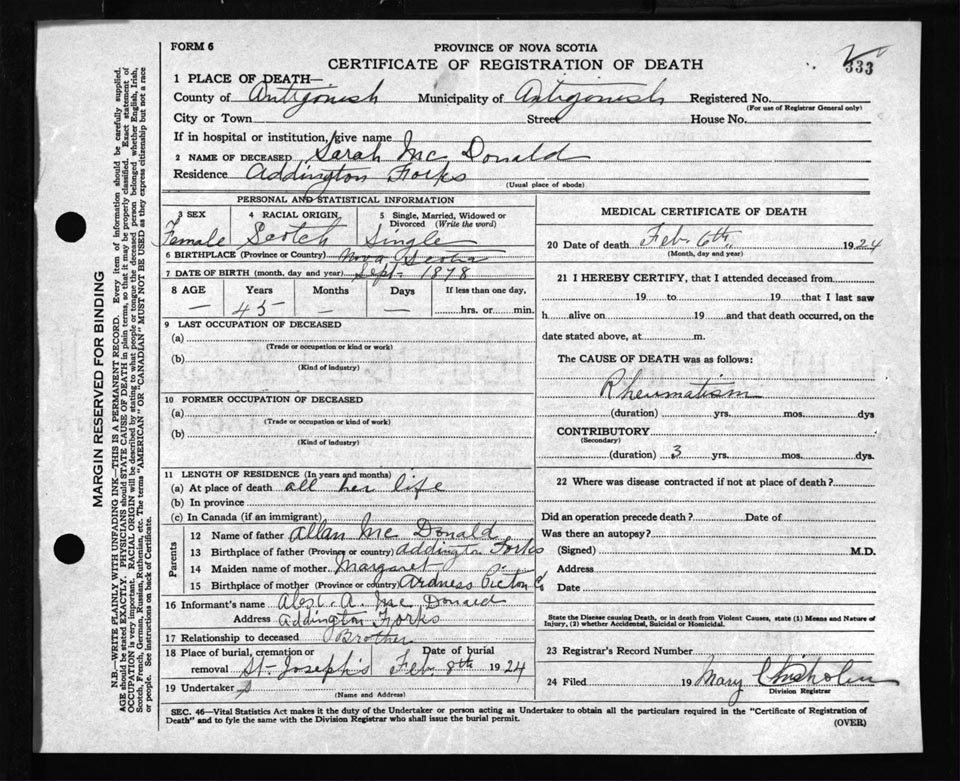 FORM 6
PROVINCE OF NOVA SCOTIA
CERTIFICATE OF REGISTRATION OF DEATH
333
1 PLACE OF DEATH—
County of Antigonish Municipality of Antigonish Registered No.
(For use of Registrar General only)
City or Town Street House No.
If in hospital or institution, give name
2 NAME OF DECEASED Sarah Mc Donald
Residence Addington Forks
(Usual place of abode)
PERSONAL AND STATISTICAL INFORMATION
3 SEX 4 RACIAL ORIGIN 5 Single, Married, Widowed or Divorced (Write the word)
Female Scotch Single
6 BIRTHPLACE (Province or Country) Nova Scotia
7 DATE OF BIRTH (month, day and year) Sept- 1878
8 AGE Years Months Days If less than one day,
— 45 — — hrs. or min.
9 LAST OCCUPATION OF DECEASED
(a)
(Trade or occupation or kind or work)
(b)
(Kind of industry)
10 FORMER OCCUPATION OF DECEASED
(a)
(Trade or occupation or kind or work)
(b)
(Kind of industry)
11 LENGTH OF RESIDENCE (In years and months)
(a) At place of death all her life
(b) In province
(c) In Canada (if an immigrant)
Parents
12 Name of father Allan Mc Donald
13 Birthplace of father (Province or country) Addington Forks
14 Maiden name of mother Margaret
15 Birthplace of mother (Province or country) Ardness Pictou
16 Informant's name Alex. A. Mc Donald
Address Addington Forks
17 Relationship to deceased Brother
18 Place of burial, cremation or Date of burial
removal St. Joseph's Feb. 8th 1924
19 Undertaker
(Name and Address)
MEDICAL CERTIFICATE OF DEATH
20 Date of death Feb 6th, 1924
(Month, day and year)
21 I HEREBY CERTIFY, that I attended deceased from
19 to 19 that I last saw
h alive on 19 and that death occurred, on the
date stated above, at m.
The CAUSE OF DEATH was as follows:
Rheumatism
(duration) yrs. mos. dys
CONTRIBUTORY
(Secondary)
(duration) 3 yrs. mos. dys.
22 Where was disease contracted if not at place of death?
Did an operation precede death? Date of
Was there an autopsy?
(Signed) M.D.
Address
Date
State the Disease Causing Death, or in death from Violent Causes, state (1) Means and Nature of
Injury, (2) whether Accidental, Suicidal or Homicidal.
23 Registrar's Record Number
24 Filed 19 Mary Chisholm
Division Registrar
SEC. 46—Vital Statistics Act makes it the duty of the Undertaker or person acting as Undertaker to obtain all the particulars required in the "Certificate of Registration of
Death" and to fyle the same with the Division Registrar who shall issue the burial permit.
(OVER)
MARGIN RESERVED FOR BINDING
N.B.—WRITE PLAINLY WITH UNFADING INK—THIS IS A PERMANENT RECORD. Every item of information should be carefully supplied.
AGE should be stated EXACTLY. PHYSICIANS should STATE CAUSE OF DEATH in plain terms, so that it may be properly classified. Exact statement of
OCCUPATION is very important. RACIAL ORIGIN will be described by stating to what people or tongue the deceased person belonged whether English, Irish,
Scotch, French, German, Russian, Ruthenian, etc. The terms "AMERICAN" OR "CANADIAN" MUST NOT BE USED as they express citizenship but not a race
or people. See instructions on back of Certificate.